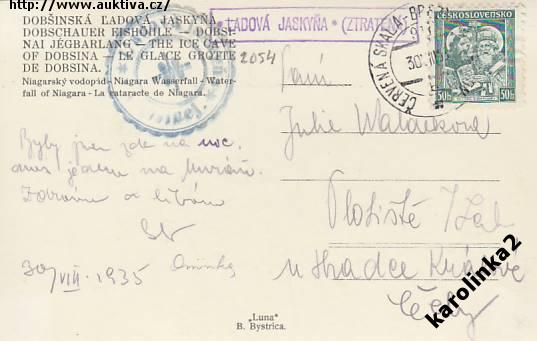 Zdroj: www.auktiva.cz/
DOBŠINSKÁ ĽADOVÁ JASKYŇA
DOBSCHAUER EISHÖHLE - DOBSI-
NAI JÉGBARLANG - THE ICE CAVE
OF DOBSINA - LE GLACE GROTTE
DE DOBSINA.
Niagarský vodopád - Niagara Wasserfall - Water-
fall of Niagara - La cataracte de Niagara.
ĽADOVÁ JASKYŇA * (ZTRATEN
2054
ČERVENÁ SKALA
30.
ČESKOSLOVENSKO
50h 50h
Paní
Julie
Byly jsme zde na noc,
dnes jedeme na Muráň.
Zdravím a líbám
30/VIII. 1935
Plotiště
u Hradce Králové
Čechy
"Luna"
B. Bystrica.
karolinka2